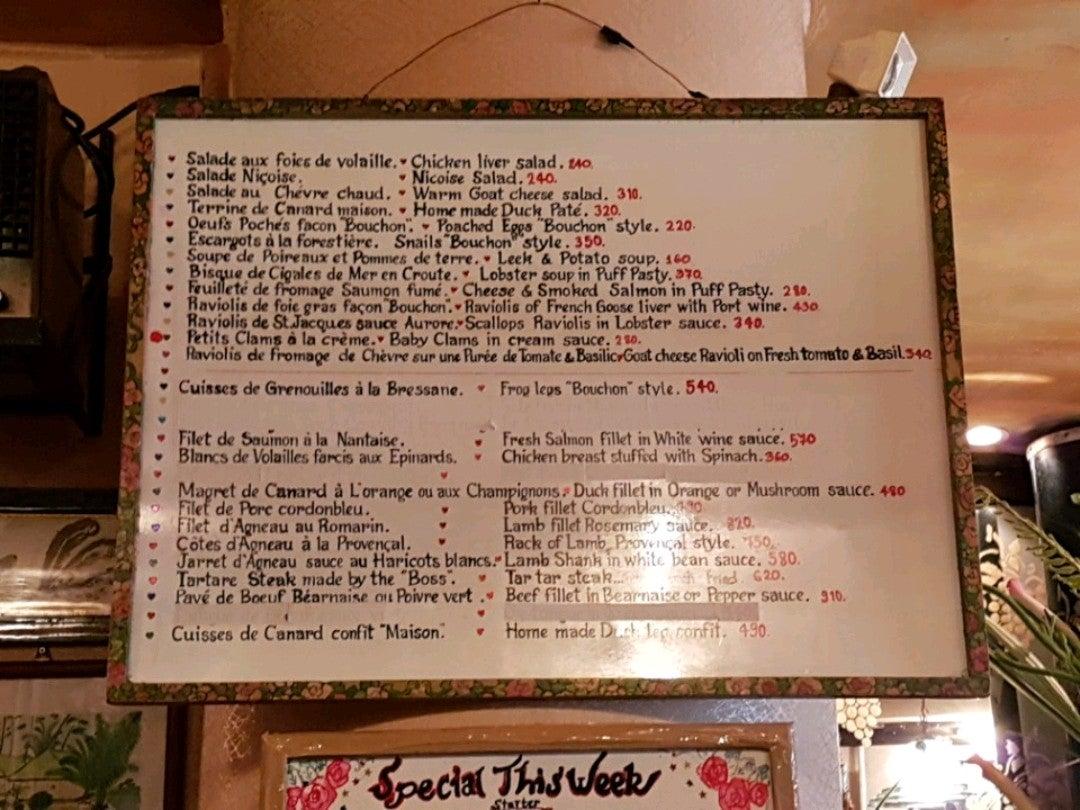 Salade aux foies de volaille. Chicken liver salad. 240.
Salade Niçoise. Nicoise Salad. 240.
Salade au Chévre chaud. Warm Goat cheese salad. 310.
Terrine de Canard maison. Home made Duck Paté. 320.
Oeufs Pochés facon "Bouchon". Poached Eggs "Bouchon" style. 220.
Escargots à la forestière. Snails "Bouchon" style. 350.
Soupe de Poireaux et Pommes de terre. Leek & Potato soup. 160
Bisque de Cigales de Mer en Croute. Lobster soup in Puff Pasty. 370
Feuilleté de fromage Saumon fumé. Cheese & Smoked Salmon in Puff Pasty. 280.
Raviolis de foie gras façon "Bouchon". Raviolis of French Goose liver with Port wine. 430
Raviolis de St.Jacques sauce Aurore. Scallops Raviolis in Lobster sauce. 340.
Petits Clams à la crème. Baby Clams in cream sauce. 280.
Raviolis de fromage de Chèvre sur une Purée de Tomate & Basilic Goat cheese Ravioli on Fresh tomato & Basil. 340
Cuisses de Grenouilles à la Bressane. Frog legs "Bouchon" style. 540.
Filet de Saumon à la Nantaise. Fresh Salmon fillet in White wine sauce. 570
Blancs de Volailles farcis aux Epinards. Chicken breast stuffed with Spinach. 360.
Magret de Canard à L'orange ou aux Champignons. Duck fillet in Orange or Mushroom sauce. 480
Filet de Porc cordonbleu. Pork fillet Cordonbleu.
Filet d'Agneau au Romarin. Lamb fillet Rosemary sauce. 820.
Côtes d'Agneau à la Provençal. Rack of Lamb, Provençal style.
Jarret d'Agneau sauce au Haricots blancs. Lamb Shank in white bean sauce. 580.
Tartare Steak made by the "Boss". Tar tar steak. fried. 620.
Pavé de Boeuf Béarnaise ou Poivre vert. Beef fillet in Bearnaise or Pepper sauce. 910.
Cuisses de Canard confit "Maison." Home made Duck leg confit. 490.
Special This Week
Starter